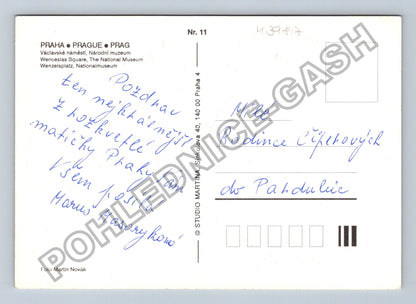 Nr. 11
43987
PRAHA ● PRAGUE ● PRAG
Václavské náměstí, Národní muzeum
Wenceslas Square, The National Museum
Wenzelsplatz, Nationalmuseum
Pozdrav
ten nejkrásnější
z rozkvetlé
matičky Prahy
Všem posílá
© STUDIO MARTIN, 40, 140 00 Praha 4
Milé
Rodince
do Pardubic
Foto Martin Novák
POHLEDNICE-GASH